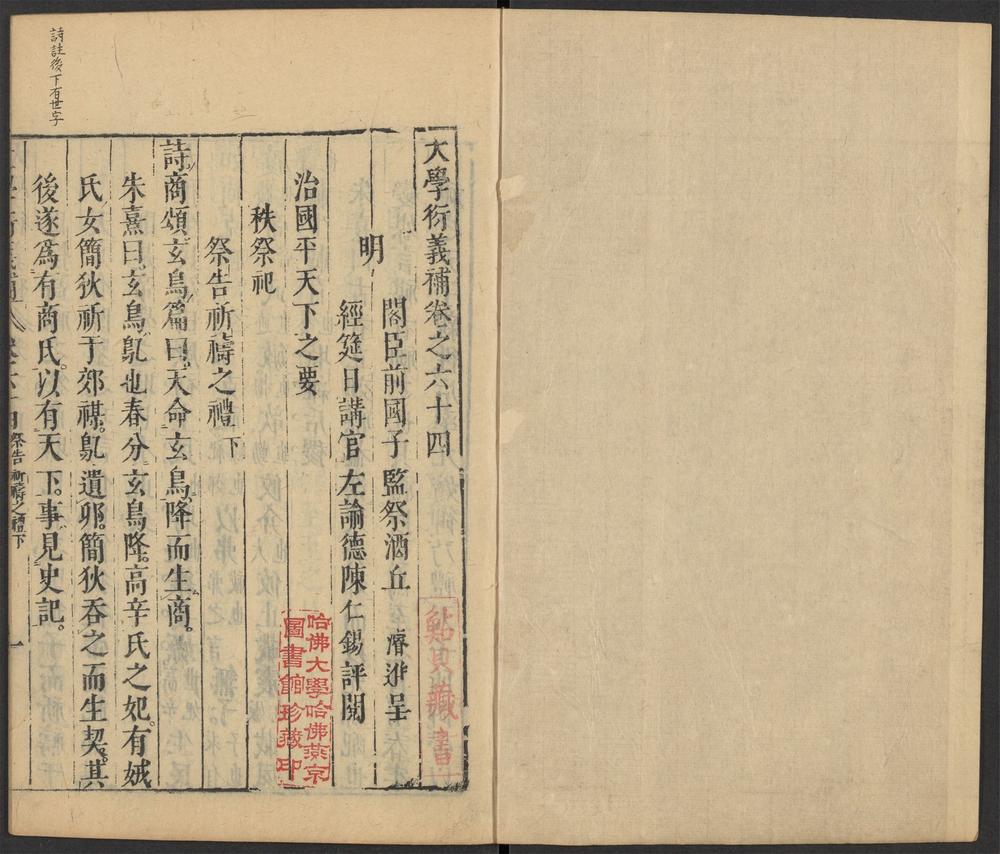 詩註後下有世字
大學衍義補卷之六十四
明
閣臣前國子監祭酒丘 濬進呈
經筵日講官左諭德陳仁錫評閱
治國平天下之要
秩祭祀
祭告祈禱之禮下
詩商頌玄鳥篇曰天命玄鳥降而生商。
朱熹曰玄鳥鳦也春分玄鳥降。高辛氏之妃。有娀
氏女簡狄祈于郊禖。鳦遺卵。簡狄吞之而生契。其
後遂爲有商氏。以有天下。事見史記。
祭告祈禱之禮下
一
哈佛大學哈佛燕京
圖書館珍藏印
藏書